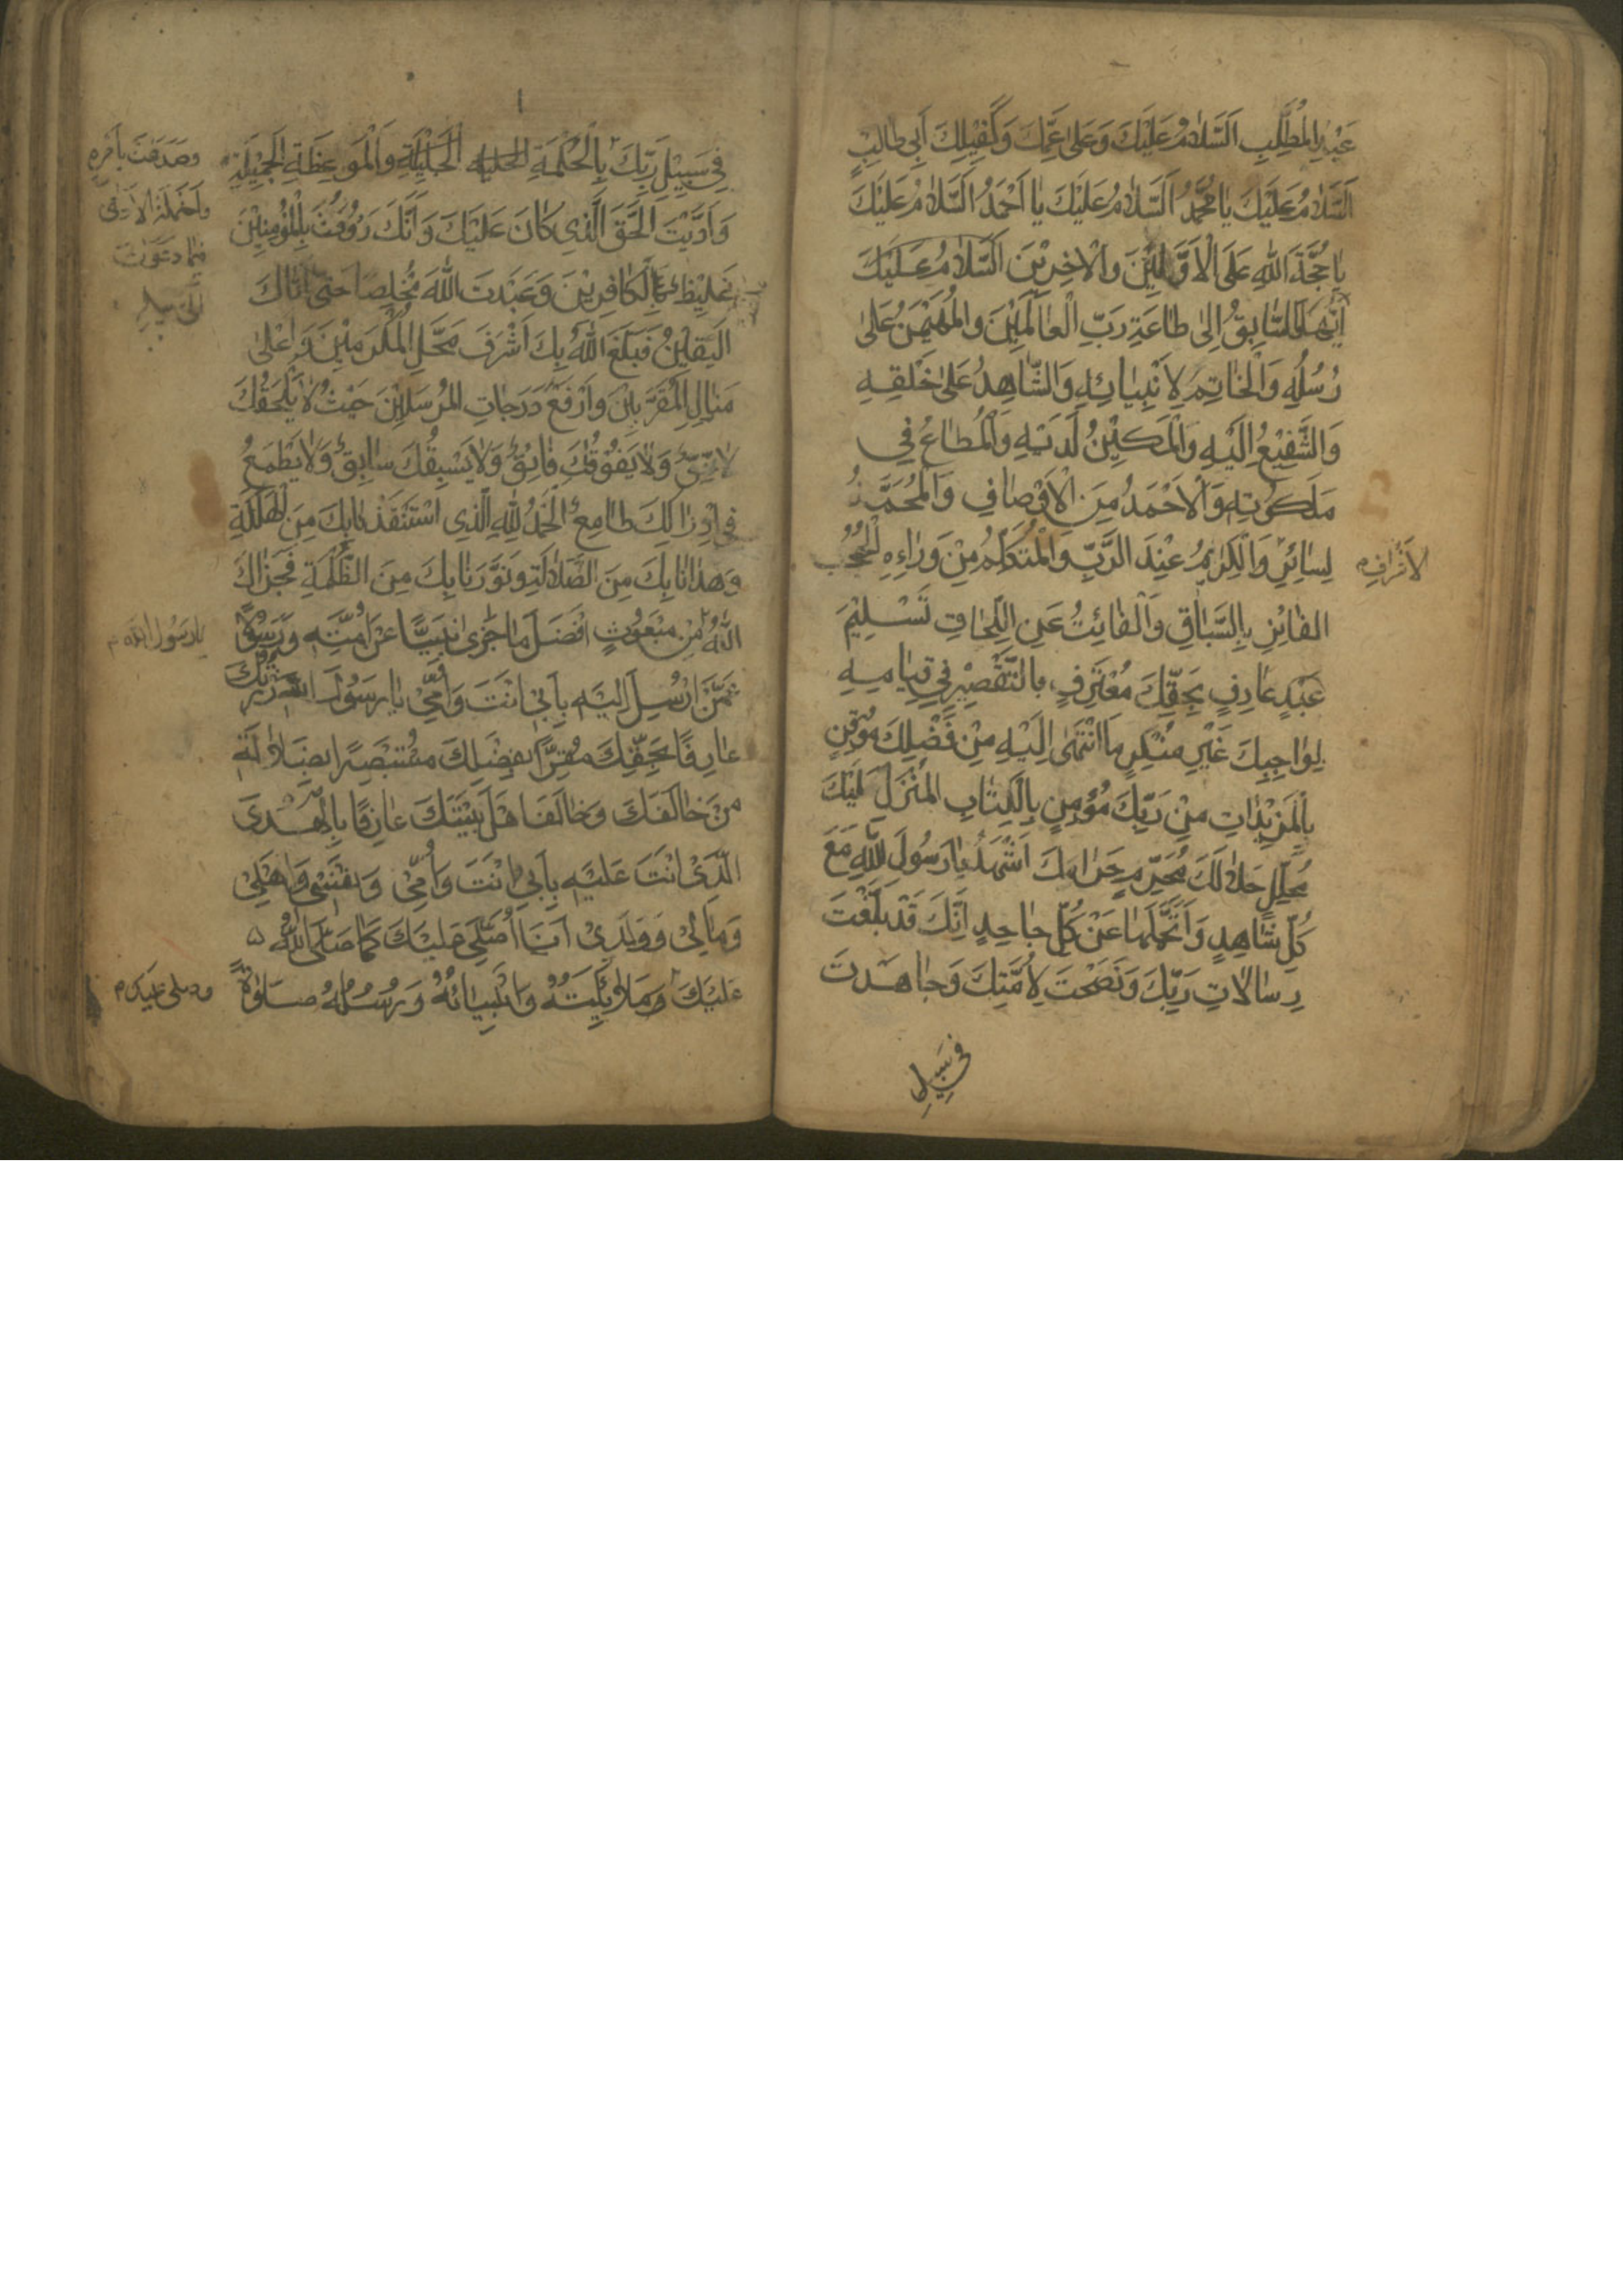 عَبْدِالْمُطَّلِبِ اَلسَّلامُ عَلَيْكَ وَعَلىٰ عَمِّكَ وَكَفِيْلِكَ اَبِى طالِبٍ
اَلسَّلامُ عَلَيْكَ يا مُحَمَّدُ اَلسَّلامُ عَلَيْكَ يا اَحْمَدُ اَلسَّلامُ عَلَيْكَ
ياحُجَّةَ اللهِ عَلَى الْاَوَّلِيْنَ وَالْاخِرِيْنَ اَلسَّلامُ عَلَيْكَ
اَيُّهَا السّابِقُ اِلىٰ طاعَةِ رَبِّ الْعالَمِيْنَ وَالْمُهَيْمِنُ عَلىٰ
رُسُلِهِ وَالْخاتِمَ لِاَنْبِيائِهِ وَالشّاهِدُ عَلىٰ خَلْقِهِ
وَالشَّفِيْعُ اِلَيْهِ وَالْمَكِيْنُ لَدَيْهِ وَالْمُطاعُ فِي
مَلَكُوتِهِ وَالْاَحْمَدُ مِنَ الْاَوْصافِ وَالْمُحَمَّدُ
لِسائِرِ وَالْكَرِيْمُ عِنْدَ الرَّبِّ وَالْمُتَكَلِّمُ مِنْ وَراءِ الْحُجُبِ
الْاَشْرافِ
الفائِزِ بِالسِّباقِ وَالْفائِتُ عَنِ اللِّحاقِ تَسْلِيْمَ
عَبْدٍ عارِفٍ بِحَقِّكَ مُعْتَرِفٍ بالتَّقْصِيْرِ فِي قِيامِهِ
بِواجِبِكَ غَيْرِ مُنْكِرٍ مَا انْتَهىٰ اِلَيْهِ مِنْ فَضْلِكَ مُوْقِنٍ
بِالْمَزِيْداتِ مِنْ رَبِّكَ مُؤْمِنٍ بِالْكِتابِ الْمُنْزَلِ عَلَيْكَ
مُحَلِّلٍ حَلالَكَ مُحَرِّمٍ حَرامَكَ اَشْهَدُ يا رَسُولَ اللهِ مَعَ
كُلِّ شاهِدٍ وَاَتَحَمَّلُها عَنْ كُلِّ جاحِدٍ اَنَّكَ قَدْ بَلَّغْتَ
رِسالاتِ رَبِّكَ وَنَصَحْتَ لِاُمَّتِكَ وَجاهَدْتَ
فِي سَبِيلِ
فِي سَبِيْلِ رَبِّكَ بِالْحِكْمَةِ الْجَلِيْلَةِ وَالْمَوْعِظَةِ الْجَمِيْلَةِ
وصَدَعْتَ بِاَمْرِهِ
وَاحْتَمَلْتَ الْاَذىٰ
وَاَدَّيْتَ الْحَقَّ الَّذِي كانَ عَلَيْكَ وَاَنَّكَ رَؤُفْتَ بِالْمُؤْمِنِيْنَ
وَغَلُظْتَ عَلَى الْكافِرِيْنَ وَعَبَدْتَ اللهَ مُخْلِصًا حَتّىٰ اَتاكَ
الْيَقِيْنُ فَبَلَغَ اللهُ بِكَ اَشْرَفَ مَحَلِّ الْمُكَرَّمِيْنَ وَاَعْلىٰ
مَنازِلِ الْمُقَرَّبِيْنَ وَاَرْفَعَ دَرَجاتِ الْمُرْسَلِيْنَ حَيْثُ لا يَلْحَقُكَ
لاحِقٌ وَلا يَفُوْقُكَ فائِقٌ وَلا يَسْبِقُكَ سابِقٌ وَلا يَطْمَعُ
فِي اِدْراكِكَ طامِعٌ الْحَمْدُ لِلهِ الَّذِي اسْتَنْقَذَنا بِكَ مِنَ الْهَلَكَةِ
وَهَدانا بِكَ مِنَ الضَّلالَةِ وَنَوَّرَنا بِكَ مِنَ الظُّلْمَةِ فَجَزاكَ
اللهُ مِنْ مَبْعُوْثٍ اَفْضَلَ ما جَزىٰ نَبِيًّا عَنْ اُمَّتِهِ وَرَسُوْلًا
يا رَسُولَ اللهِ
عَمَّنْ اُرْسِلَ اِلَيْهِ بِاَبِي اَنْتَ وَاُمِّي يا رَسُوْلَ اللهِ زُرْتُكَ
عارِفًا بِحَقِّكَ مُقِرًّا بِفَضْلِكَ مُسْتَبْصِرًا بِضَلالَةِ
مَنْ خالَفَكَ وَخالَفَ اَهْلَ بَيْتِكَ عارِفًا بِالْهُدَى
الَّذِي اَنْتَ عَلَيْهِ بِاَبِي اَنْتَ وَاُمِّي وَنَفْسِي وَاَهْلِي
وَمالِي وَوَلَدِي اَنَا اُصَلِّي عَلَيْكَ كَما صَلَّى اللهُ
عَلَيْكَ وَمَلائِكَتُهُ وَاَنْبِيائُهُ وَرُسُلُهُ صَلٰوةً
وصلى عليك